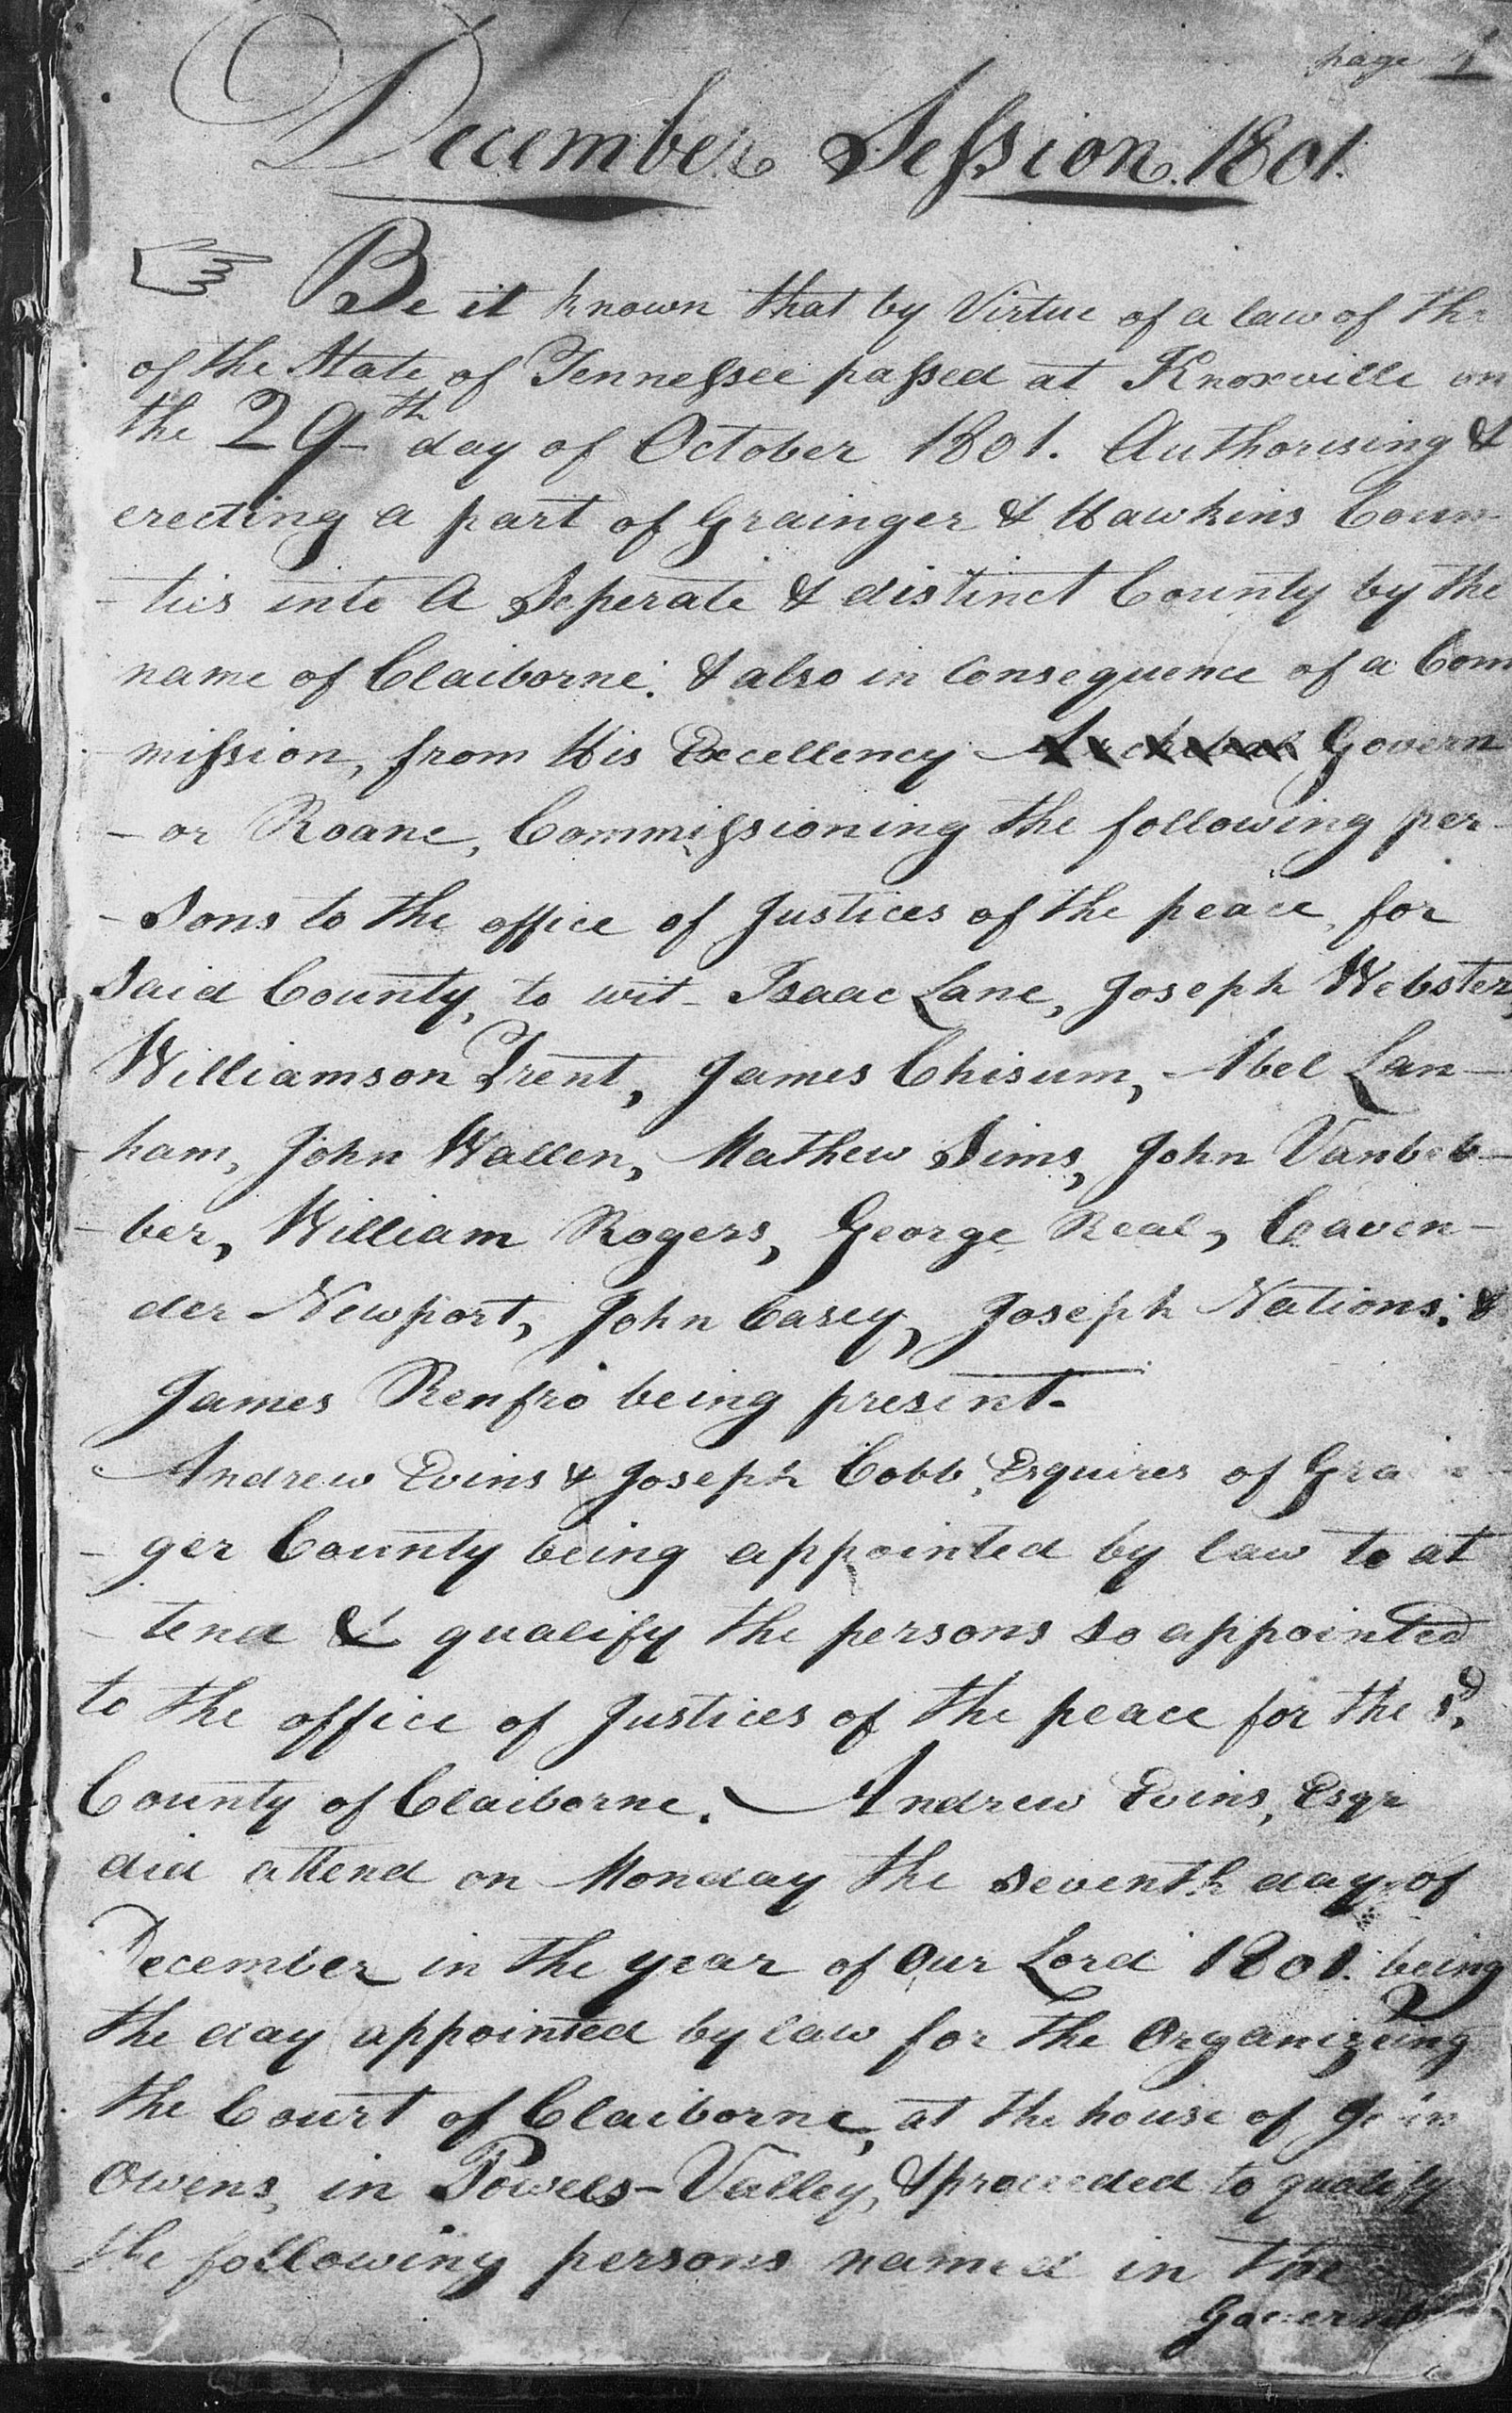 page 1
December Session 1801.
Be it known that by Virtue of a law of the
of the State of Tennessee passed at Knoxville on
the 29th day of October 1801. Authorising &
erecting a part of Grainger & Hawkins Coun-
-ties into A Seperate & distinct County by the
name of Claiborne. & also in Consequence of a Com
mission, from His Excellency Govern
-or Roane, Commissioning the following per-
-sons to the office of Justices of the peace, for
Said County, to wit- Isaac Lane, Joseph Webster,
Williamson Trent, James Chisum, Abel Lan-
ham, John Wallen, Mathew Sims, John Vanbeb-
-ber, William Rogers, George Real, Caven-
der Newport, John Casey, Joseph Nations; &
James Renfro being present.
Andrew Evins & Joseph Cobb, Esquires of Grain-
-ger County being appointed by law to at
-tend & qualify the persons so appointed
to the office of Justices of the peace for the sd.
County of Claiborne. Andrew Evins, Esqr
did attend on Monday the seventh day of
December in the year of Our Lord 1801. being
the day appointed by law for the Organizeing
the Court of Claiborne, at the house of John
Owens, in Powels-Valley, & proceeded to qualify
the following persons named in the
Governs